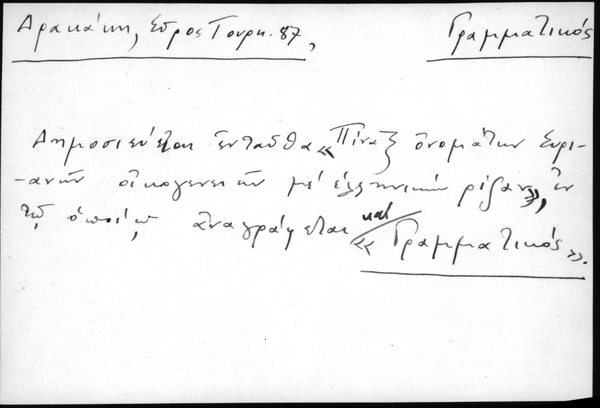 Αρακάκη, Σύρος Τουρκ. 87, Γραμματικός
Δημοσιεύεται ἐνταῦθα «Πίναξ ὀνομάτων Συρι-
-ανῶν οἰκογενειῶν μέ ἑλληνικήν ρίζαν», ἐν
τῷ ὁποίῳ ἀναγράφεται καί «Γραμματικός».